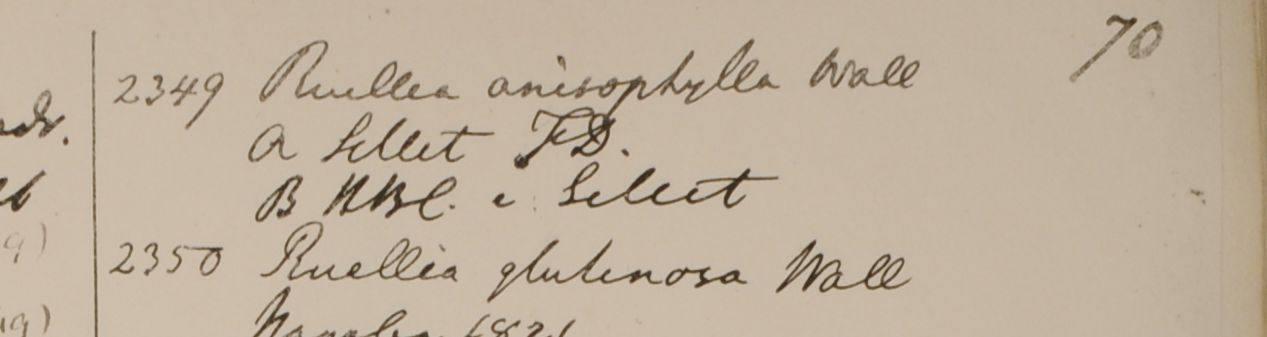 70
2349 Ruellia anisophylla Wall
a Sillet FD.
B HBC. e Sillet
2350 Ruellia glutinosa Wall
1821